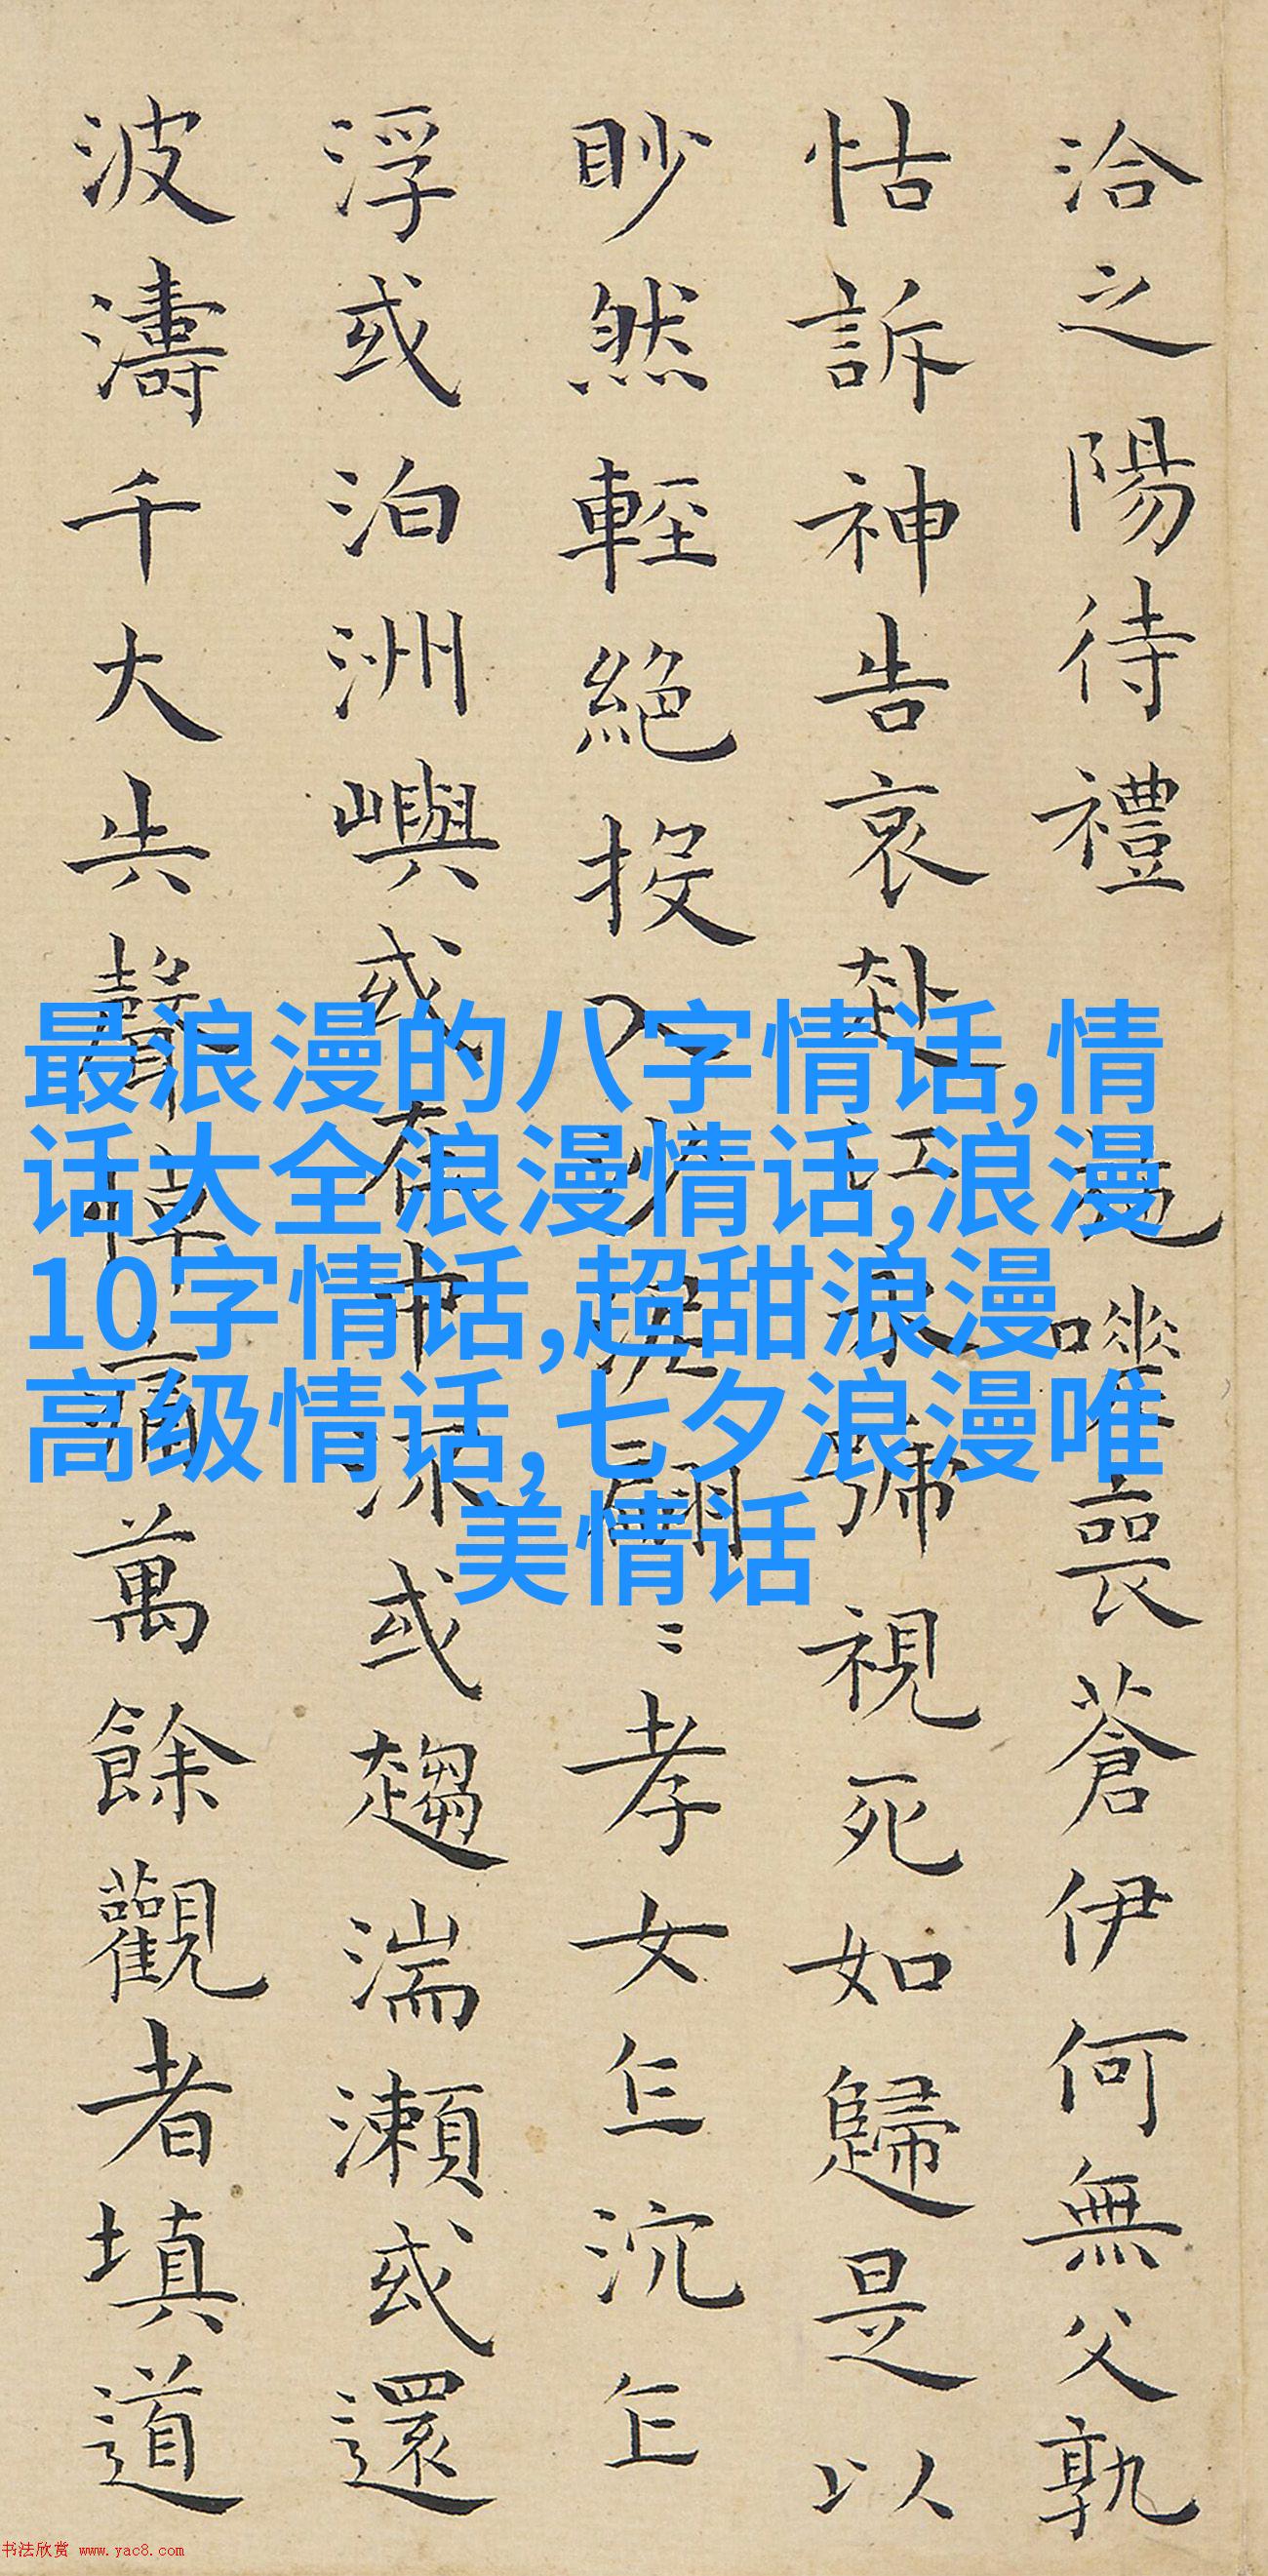 洽之陽待禮 施嗟喪蒼伊何無父孰
怙訴神告哀赴江永號視死如歸是以
眇然輕絕投入沙泥翩〻孝女乍沉乍
浮或泊洲嶼或在中流或趨湍瀨或還
波濤千大失聲悼痛萬餘觀者填道
最浪漫的八字情话,情
话大全浪漫情话,浪漫
10字情话,超甜浪漫
高级情话,七夕浪漫唯
美情话
书法欣赏 www.yac8.com